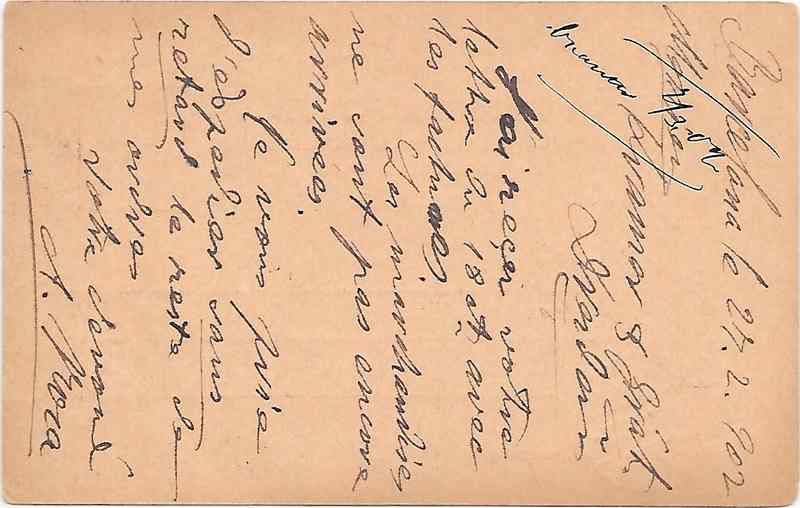 Barcelona le 27.2.902
Messieurs
Kramer & Biják
J'ai reçu votre
lettre du 18 ct avec
les factures
Les marchandises
ne sont pas encore
arrivées.
Je vous prie
d'expedier sans
retard le reste de
mes ordres
Votre devoué
A. Mora